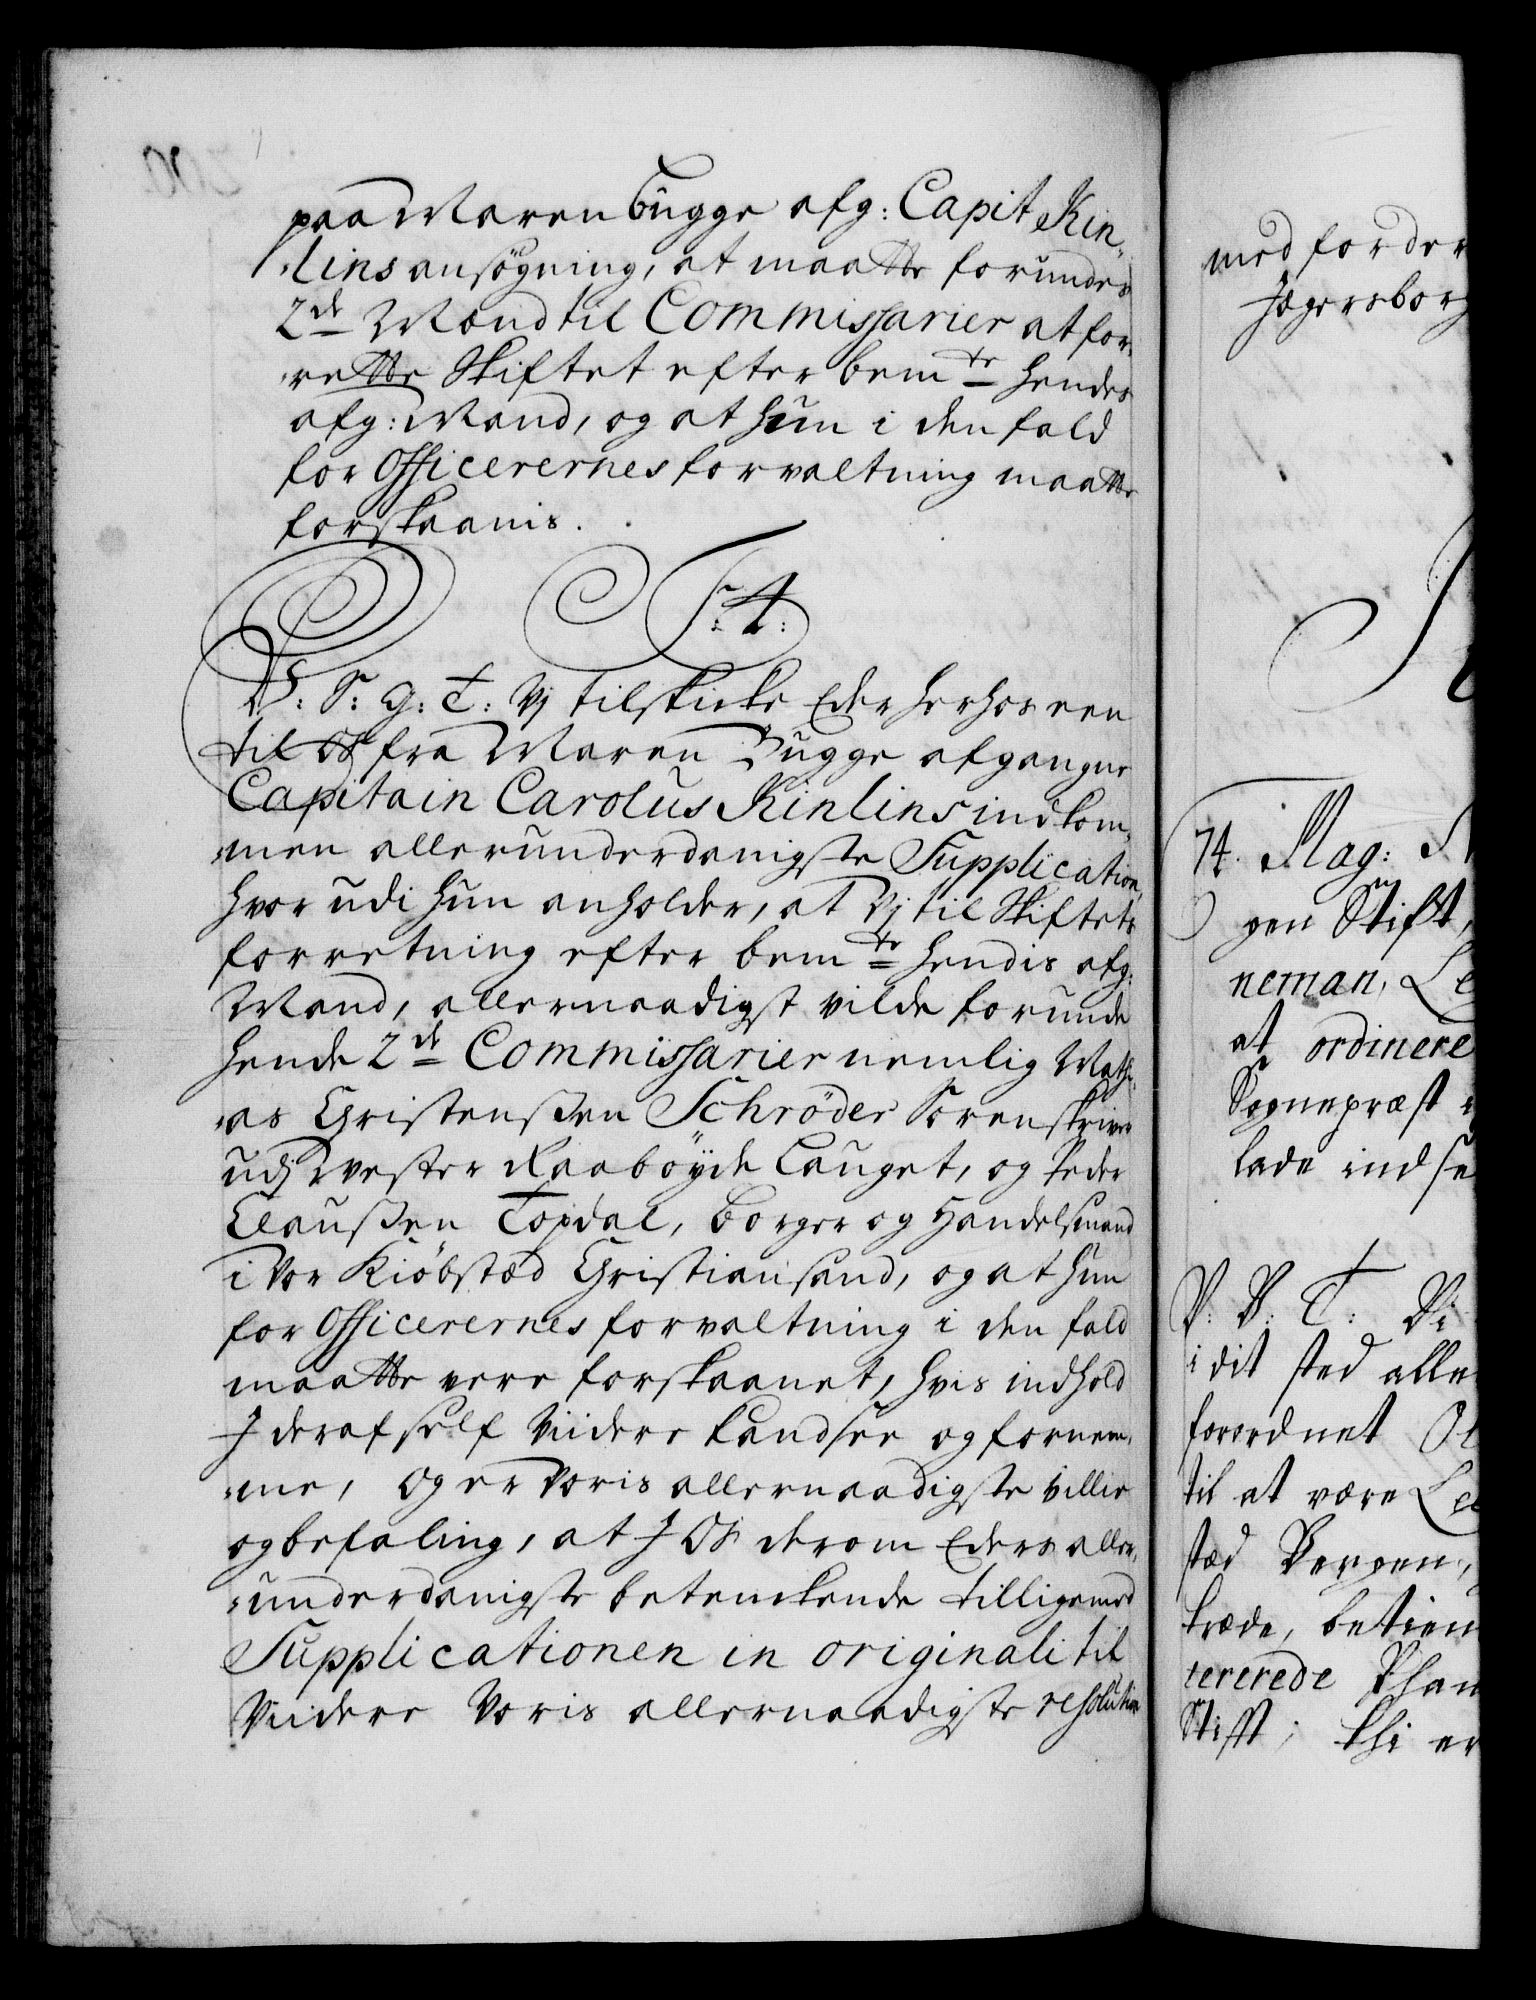 paa Maren Bugge afg: Capit Kin-
-lins ansøgning, at maatte forundes
2de Mænd til Commissarier at for-
-rette Skiftet efter bemte hendes
afg: Mand, og at hun i den fald
for Officerernes forvaltning maatte
forskaanis.
F: 4:
V: S: G: T: Vj tilskicke Eder herhos een
til Os fra Maren Bugge afgangne
Capitain Carolus Kinlins indkom-
-men allerunderdanigste Supplication,
hvor udi hun anholder, at Vj til Skiftets
forretning efter bemte hendis afg:
Mand, allernaadigst vilde forunde
hende 2de Commissarier nemlig Mathi-
-as Christenssen Schrøder Sorenskriver
udj Wester Raabøyde Lauget, og Peder
Claussen Topdal, borger og Handelsmand
i Vor Kiøbstæd Christiansand, og at hun
for Officerernes forvaltning i den fald
maatte vere forskaanet, hvis indhold
J deraf self viidere kand see og fornem-
-me, Og er Voris allernaadigste villie
og befaling, at J Os derom Eders aller-
-underdanigste betenckende tilligemed
Supplicationen in originali til
Viidere Voris allernaadigste resolution
med for der
Jægersborg
74. Mag:
gen Stift,
neman, Le
at ordinere
Sognepræst
lade indse
V: V: T: Vi
i dit sted alle
forordnet
til at være Le
stæd Bergen,
træde, betien
tererede
Stifft; thi er